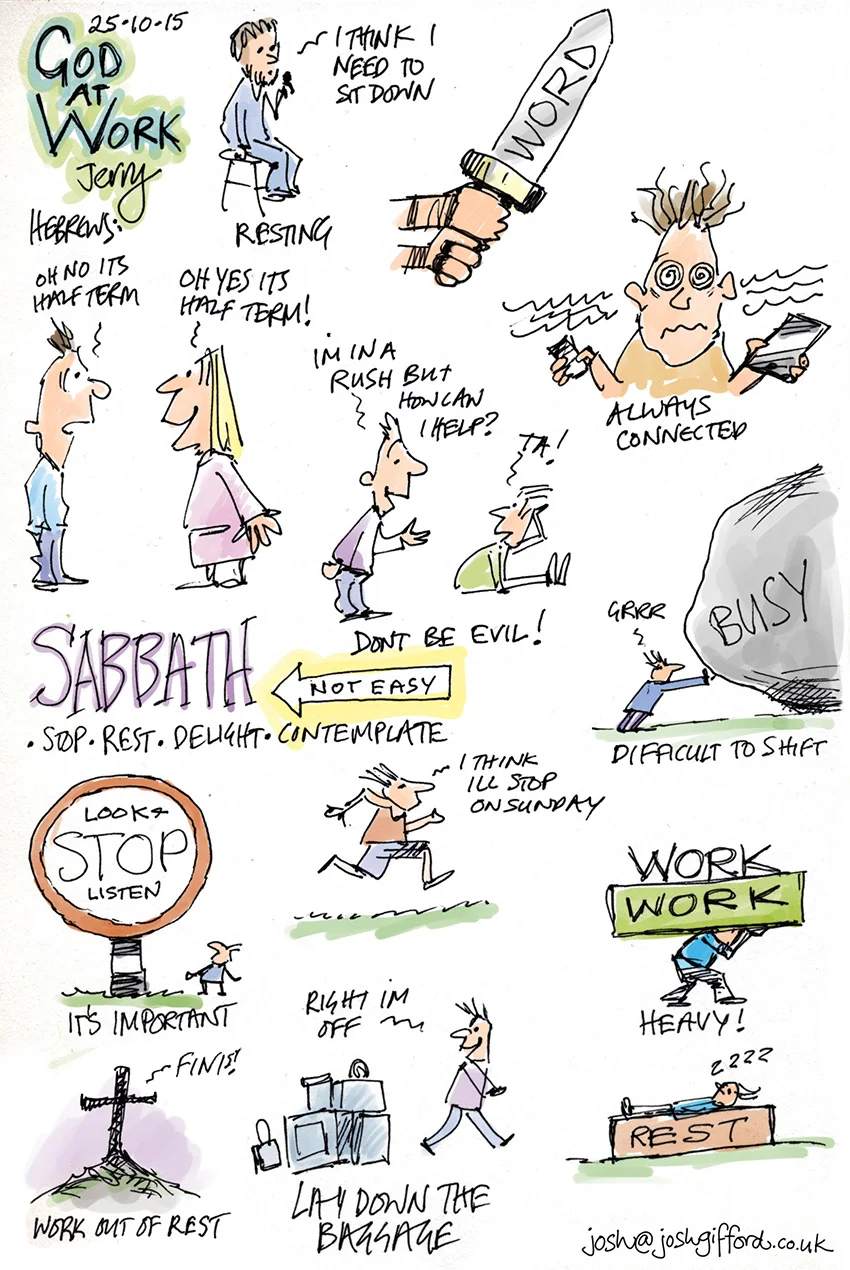 25·10·15
GOD
AT
WORK
Jerry
HEBREWS:
I THINK I
NEED TO
SIT DOWN
RESTING
WORD
OH NO ITS
HALF TERM
OH YES ITS
HALF TERM!
I'M IN A
RUSH BUT
HOW CAN
I HELP?
TA!
DONT BE EVIL!
ALWAYS
CONNECTED
SABBATH
NOT EASY
· STOP · REST · DELIGHT · CONTEMPLATE
GRRR
BUSY
DIFFICULT TO SHIFT
LOOK &
STOP
LISTEN
IT'S IMPORTANT
I THINK
ILL STOP
ON SUNDAY
WORK
WORK
HEAVY!
FINIS!
WORK OUT OF REST
RIGHT IM
OFF
LAY DOWN THE
BAGGAGE
ZZZZ
REST
josh@joshgifford.co.uk